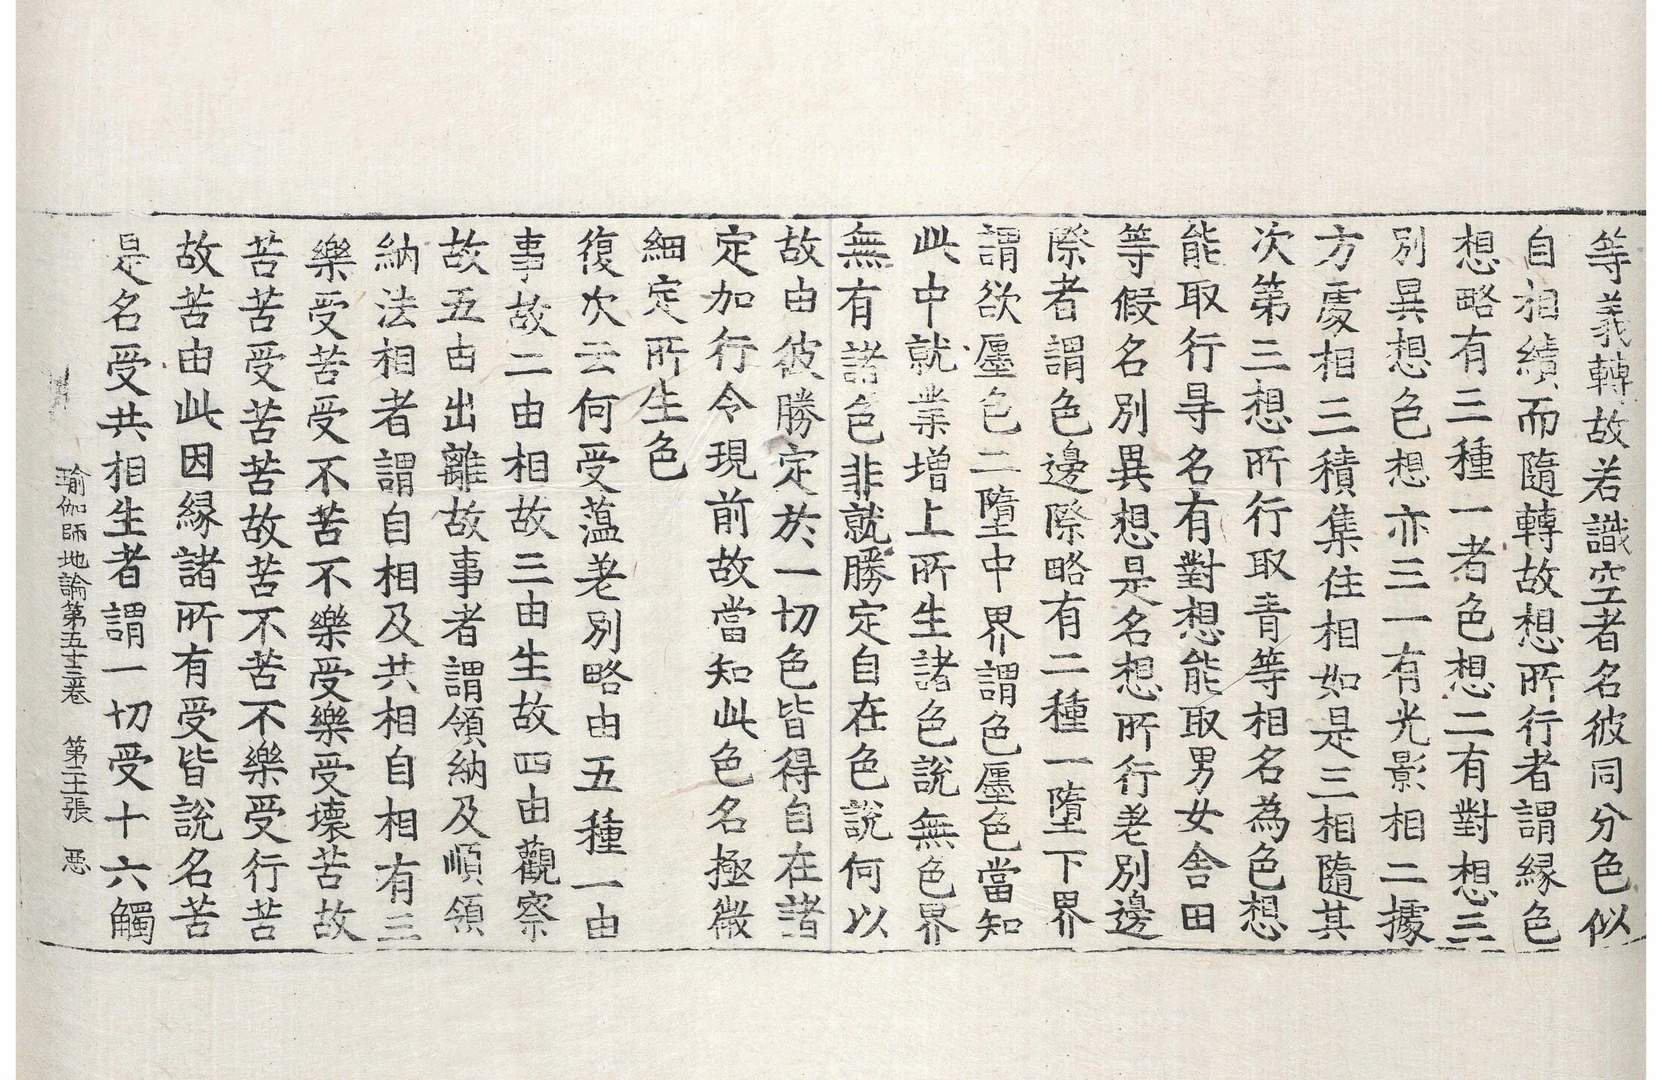 等義轉故若識空者名彼同分色似
自相續而隨轉故想所行者謂緣色
想略有三種一者色想二有對想三
別異想色想亦三一有光影相二據
方處相三積集住相如是三相隨其
次第三想所行取青等相名為色想
能取行㝵名有對想能取男女舍田
等假名別異想是名想所行差別邊
際者謂色邊際略有二種一墮下界
謂欲廛色二墮中界謂色廛色當知
此中就業增上所生諸色說無色界
無有諸色非就勝定自在色說何以
故由彼勝定於一切色皆得自在諸
定加行令現前故當知此色名極微
細定所生色
復次云何受薀差別略由五種一由
事故二由相故三由生故四由觀察
故五由出離故事者謂領納及順領
納法相者謂自相及共相自相有三
樂受苦受不苦不樂受樂受壞苦故
苦苦受苦苦故苦不苦不樂受行苦
故苦由此因緣諸所有受皆說名苦
是名受共相生者謂一切受十六觸
瑜伽師地論第五十三卷 第三張 惡